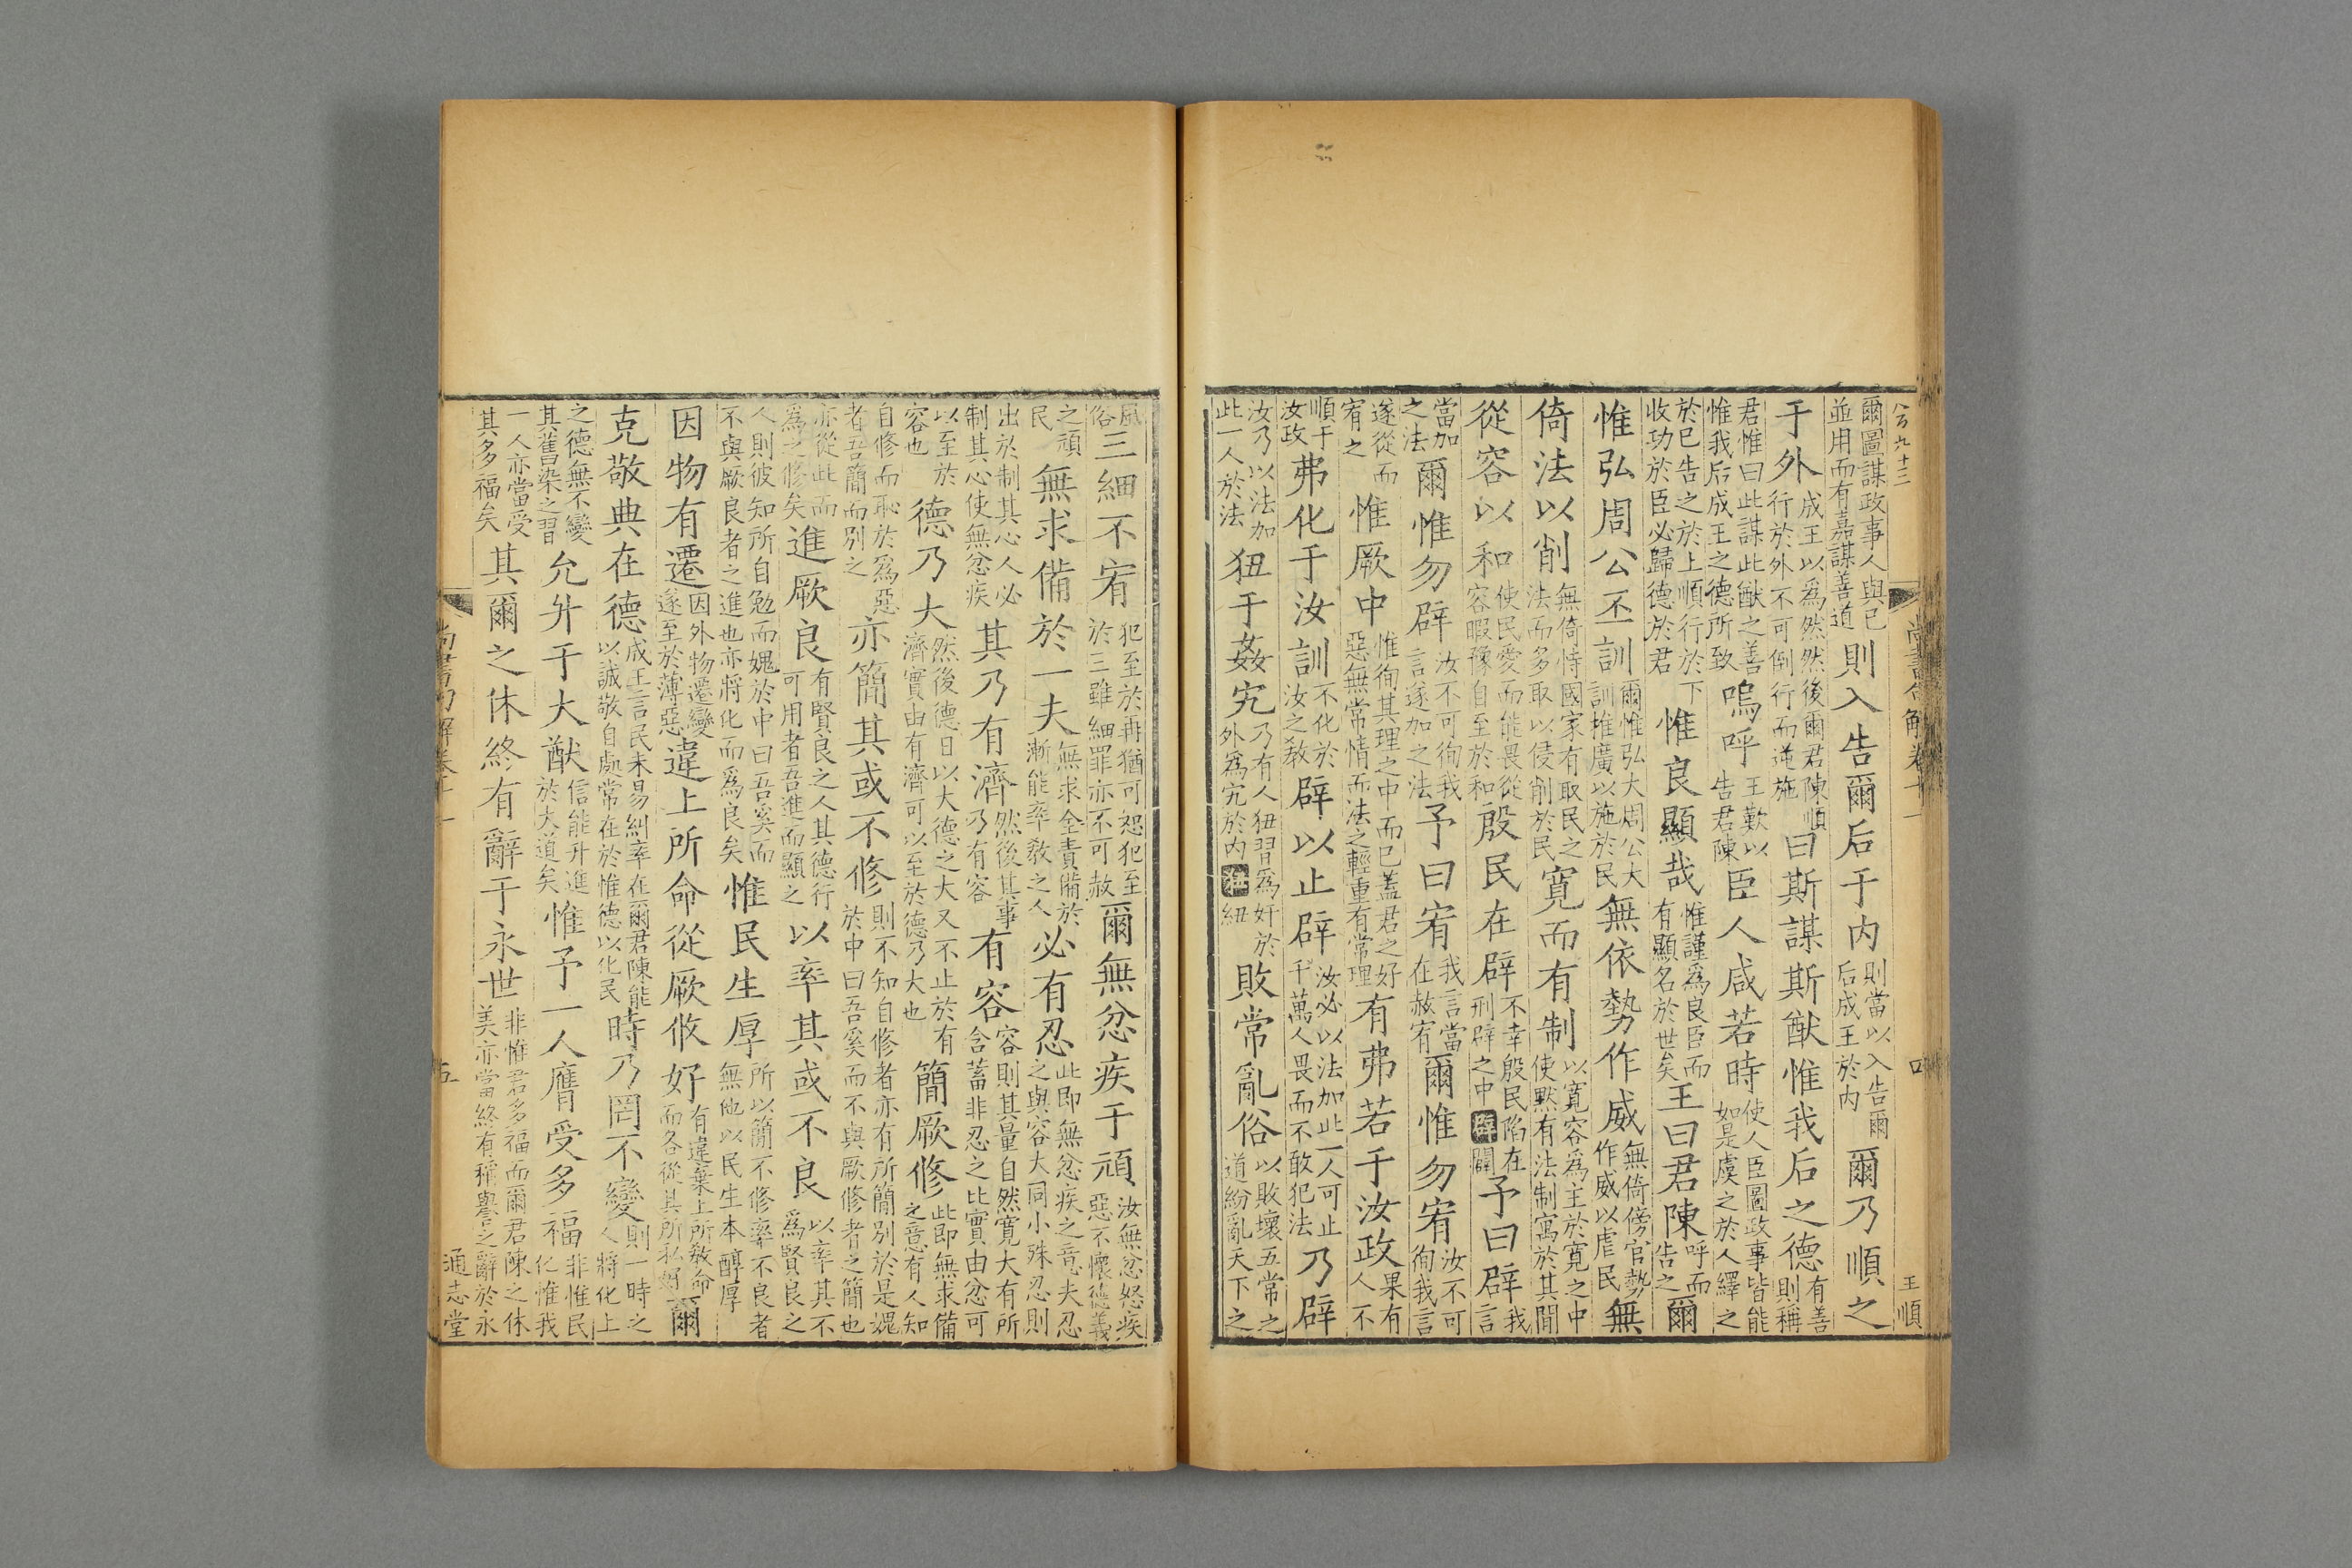 公九十三
尚書句解卷十一
四
王順
爾圖謀政事人與已並用而有嘉謀善道則入告爾后于内則當以入告爾后成王於内爾乃順之
于外成王以爲然然後爾君陳順行於外不可倒行而逆施曰斯謀斯猷惟我后之德有善則稱
君惟曰此謀此猷之善惟我后成王之德所致嗚呼王歎以告君陳臣人咸若時使人臣圖政事皆能如是虔之於人繹之
於已告之於上順行於下收功於臣必歸德於君惟良顯哉惟謹爲良臣而有顯名於世矣王曰君陳呼而告之爾
惟弘周公丕訓爾惟弘大周公大訓推廣以施於民無依勢作威無倚傍官勢作威以虐民無
倚法以削無倚恃國家有取民之法而多取以侵削於民寛而有制以寛容爲主於寛之中使默有法制寓於其間
從容以和使民愛而能畏從容暇豫自至於和殷民在辟不幸殷民陷在刑辟之中辟闢予曰辟我言
當加之法爾惟勿辟汝不可徇我言遂加之法予曰宥我言當在赦宥爾惟勿宥汝不可徇我言
遂從而宥之惟厥中惟徇其理之中而已蓋君之好惡無常情而法之輕重有常理有弗若于汝政果有人不
順于汝政弗化于汝訓不化於汝之教辟以止辟汝必以法加此一人可止千萬人畏而不敢犯法乃辟
汝乃以法加此一人於法狃于姦宄乃有人狃習爲奸於外爲宄於内狃紐敗常亂俗以敗壞五常之道紛亂天下之
風俗三細不宥犯至於再猶可恕犯至於三雖細罪亦不可赦爾無忿疾于頑汝無忿怒疾惡不懷德義
之頑民無求備於一夫無求全責備於漸能率教之人必有忍此即無忿疾之意夫忍之與容大同小殊忍則
出於制其心人必制其心使無忿疾其乃有濟然後其事乃有容有容容則其量自然寛大有所含蓄非忍之比實由忿可
以至於容也德乃大然後德日以大德之大又不止於有濟實由有濟可以至於德乃大也簡厥修此即無求備之意有人知
自修而恥於爲惡者吾簡而别之亦簡其或不修則不知自修者亦有所簡别於是媿於中曰吾奚而不與厥修者之簡也
亦從此而爲之修矣進厥良有賢良之人其德行可用者吾進而顯之以率其或不良以率其不爲賢良之
人則彼知所自勉而媿於中曰吾奚而不與厥良者之進也亦將化而爲良矣惟民生厚所以簡不修率不良者無他以民生本醇厚
因物有遷因外物遷變遂至於薄惡違上所命從厥攸好有違棄上所教命而各從其所私好爾
克敬典在德成王言民未易糾率在爾君陳能以誠敬自處常在於惟德以化民時乃罔不變則一時之人將化上
之德無不變其舊染之習允升于大猷信能升進於大道矣惟予一人膺受多福非惟民化惟我
一人亦當受其多福矣其爾之休終有辭于永世非惟君多福而爾君陳之休美亦當終有稱譽之辭於永
尚書句解卷十一
五
通志堂